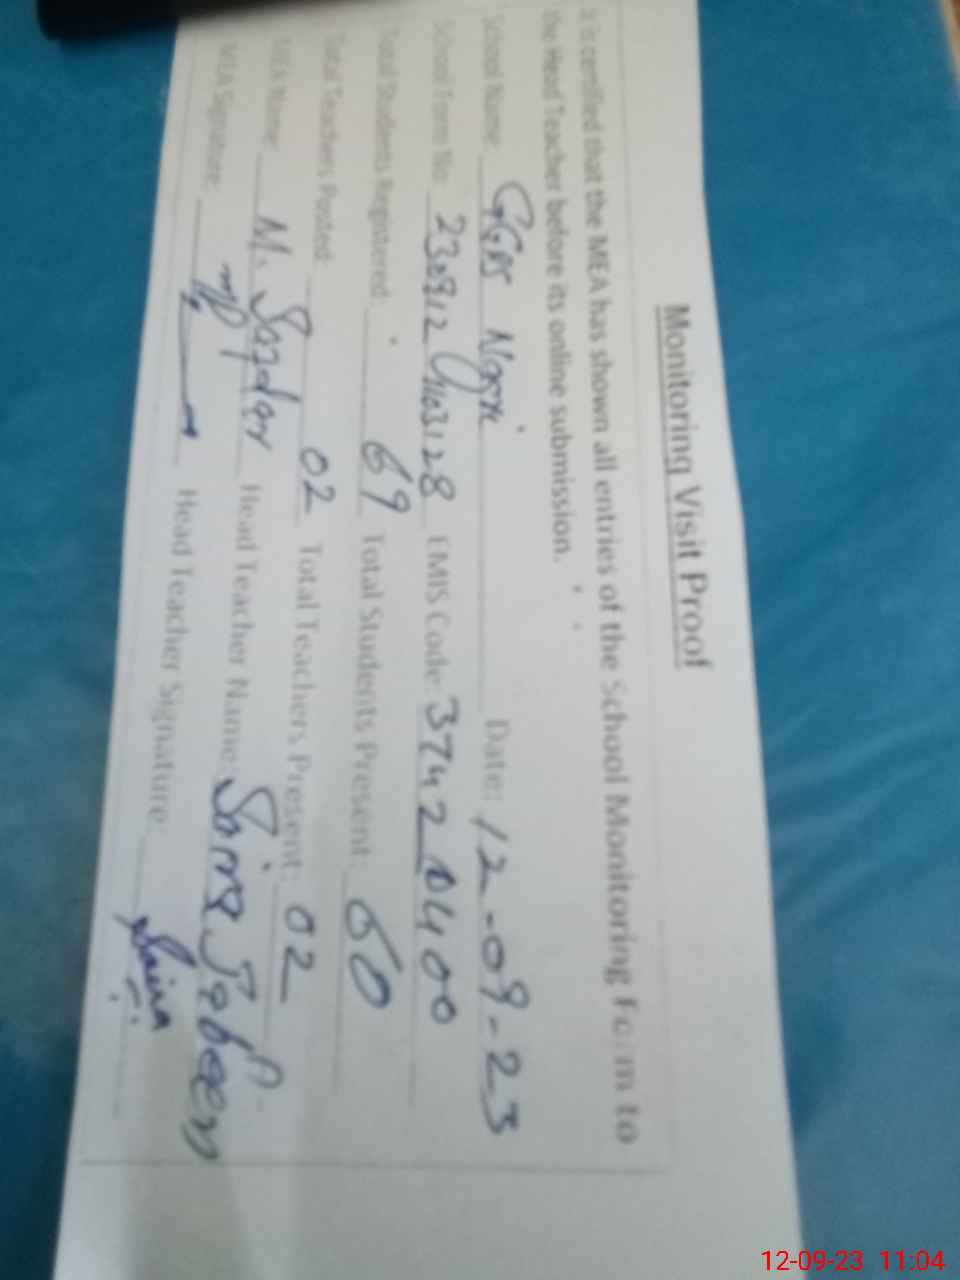 Monitoring Visit Proof
It is certified that the MEA has shown all entries of the School Monitoring Form to
the Head Teacher before its online submission.
School Name: GGPS Date: 12-09-23
School Form No: EMIS Code: 37420400
Total Students Registered: 69 Total Students Present: 60
Total Teachers Posted: 02 Total Teachers Present: 02
MEA Name: M. Safdar Head Teacher Name: Saima Jabeen
MEA Signature: Head Teacher Signature: Saima
12-09-23 11:04